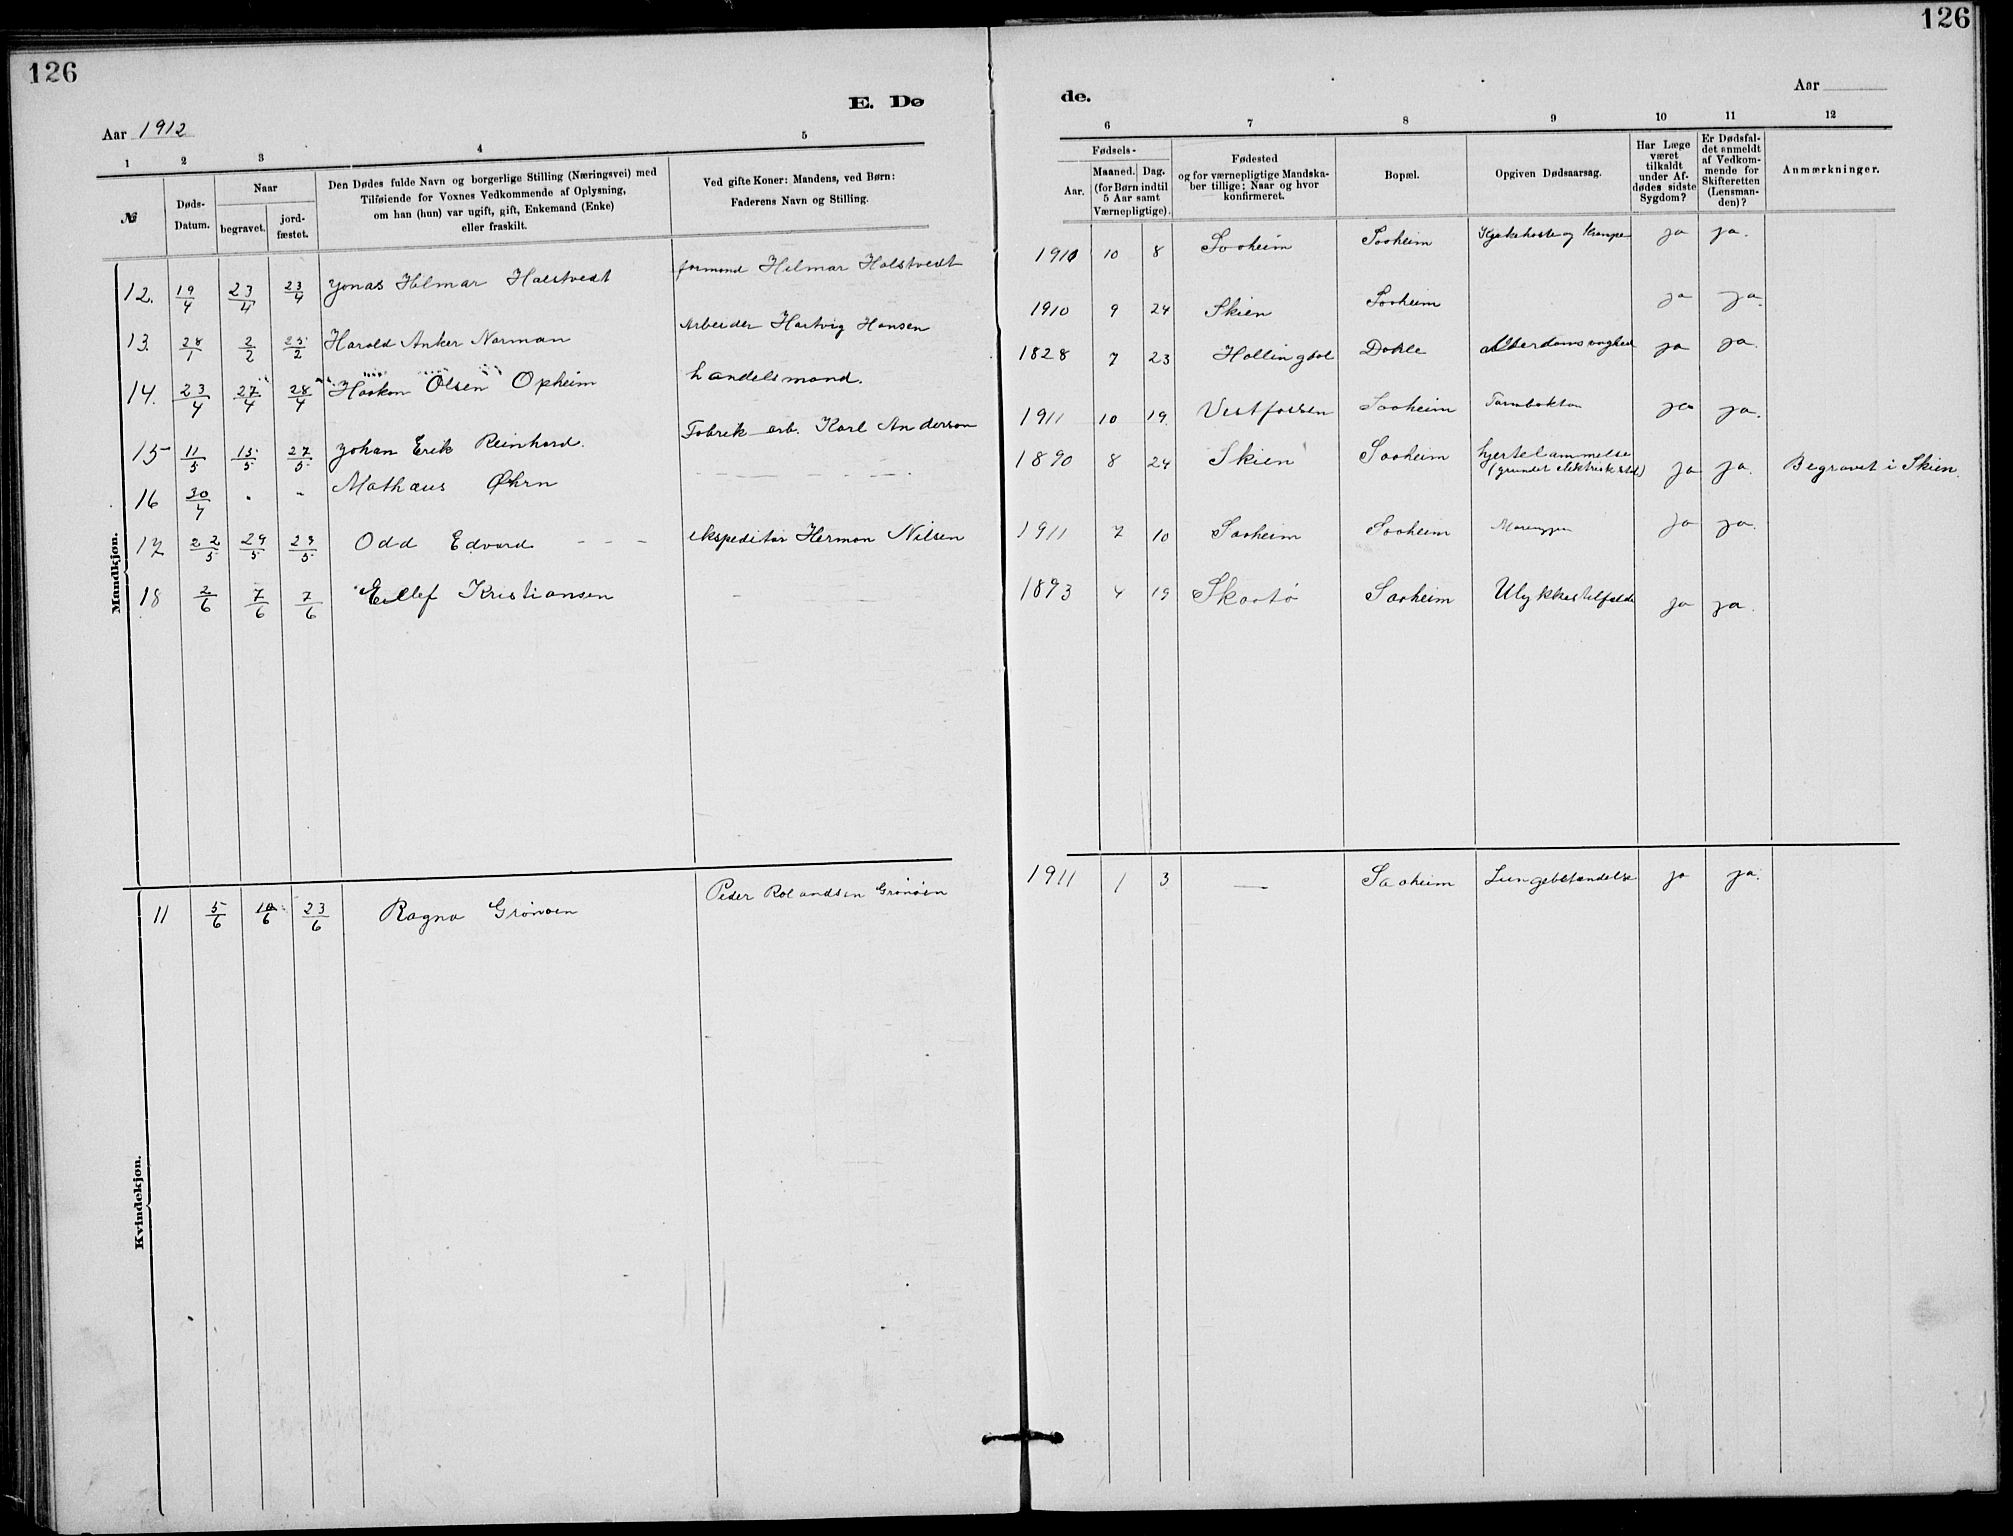 126
126
E. Dø
de.
Aar 1912
Aar
1 2 3 4 5
6 7 8 9 10 11 12
№
Døds-
Datum.
Naar
begravet.
jord-
fæstet.
Den Dødes fulde Navn og borgerlige Stilling (Næringsvei) med
Tilføiende for Voxnes Vedkommende af Oplysning,
om han (hun) var ugift, gift, Enkemand (Enke)
eller fraskilt.
Ved gifte Koner: Mandens, ved Børn:
Faderens Navn og Stilling.
Fødsels-
Aar.
Maaned. Dag.
(for Børn indtil
5 Aar samt
Værnepligtige).
Fødested
og for værnepligtige Mandska-
ber tillige: Naar og hvor
konfirmeret.
Bopæl.
Opgiven Dødsaarsag.
Har Læge
været
tilkaldt
under Af-
dødes sidste
Sygdom?
Er Dødsfal-
det anmeldt
af Vedkom-
mende for
Skifteretten
(Lensman-
den)?
Anmærkninger.
Mandkjøn.
12. 19/4 23/4 23/4 Jonas Hilmar Halstvedt formand Hilmar Halstvedt 1910 10 8 Saaheim Saaheim Kjekehoste og Krampe ja ja.
13. 28/1 2/2 25/2 Harald Anker Norman Arbeider Hartvig Hansen 1910 9 24 Skien Saaheim ja ja.
14. 23/4 27/4 28/4 Haakon Olsen Opheim handelsmand. 1828 7 23 Hallingdal Dahle Alderdomssvaghed ja ja.
15 11/5 15/5 27/5 Johan Erik Reinhard. Fabrik arb. Karl Anderson 1911 10 19 Vestfossen Saaheim ja ja.
16 30/4 " " Mathæus Øhrn — — — 1890 8 24 Skien Saaheim hjertelammelse
(grundet elektrisk stød) ja ja. Begravet i Skien.
17 22/5 29/5 29/5 Odd Edvard - - - ekspeditør Herman Nilsen 1911 7 10 Saaheim Saaheim ja ja.
18 2/6 7/6 7/6 Ellef Kristiansen — — 1893 4 19 Skaatø Saaheim Ulykkestilfælde ja ja.
Kvindekjøn.
11 5/6 10/6 23/6 Ragna Grønoen Peder Rolandsen Grønoen 1911 1 3 — Saaheim Lungebetændelse ja ja.